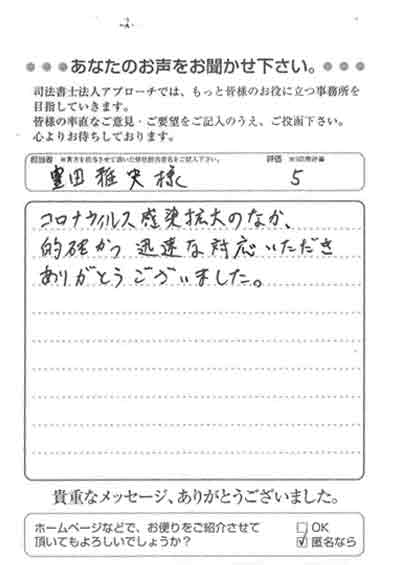 -2-
あなたのお声をお聞かせ下さい。
司法書士法人アプローチでは、もっと皆様のお役に立つ事務所を
目指していきます。
皆様の率直なご意見・ご要望をご記入のうえ、ご投函下さい。
心よりお待ちしております。
担当者 ※貴方を担当させて頂いた弊社担当者名をご記入下さい。 評価 ※5段階評価
豊田 雅史 様 5
コロナウィルス感染拡大のなか、
的確かつ迅速な対応いただき
ありがとうございました。
貴重なメッセージ、ありがとうございました。
ホームページなどで、お便りをご紹介させて
頂いてもよろしいでしょうか?
OK
匿名なら